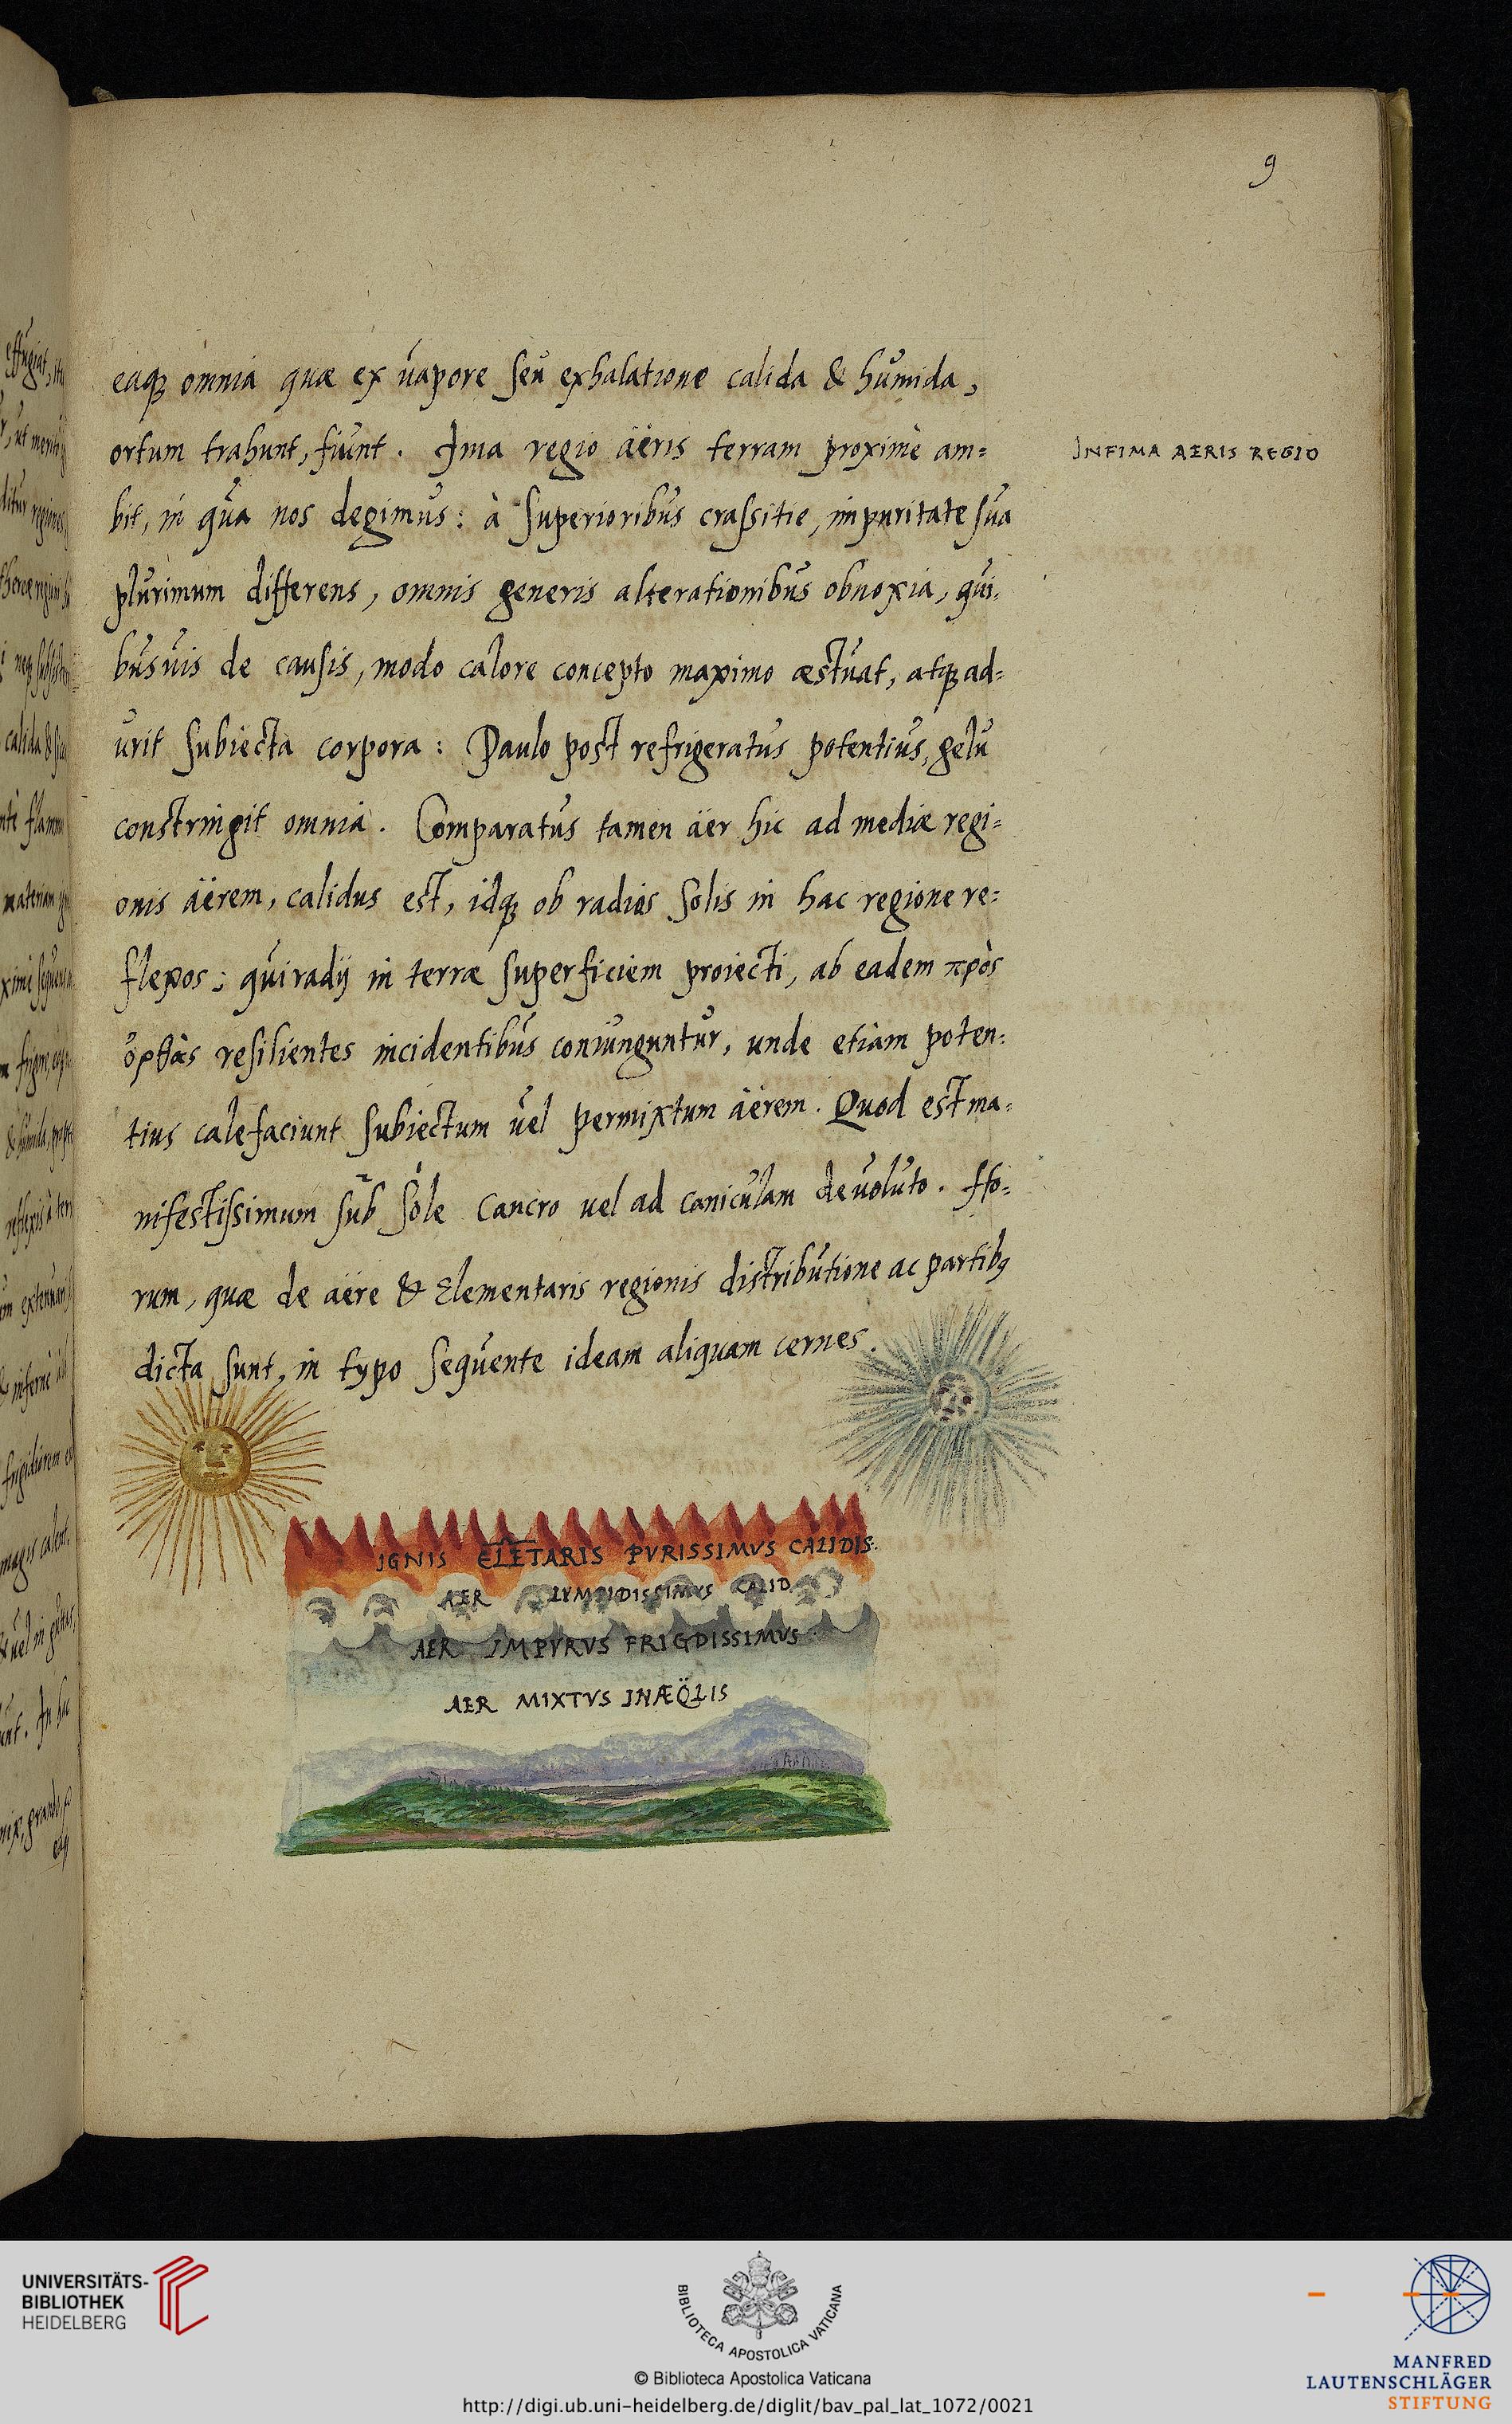 9
eaq; omnia quæ ex vapore seu exhalatione calida & humida,
ortum trahunt, fiunt. Ima regio aëris terram proximè am=
INFIMA AERIS REGIO
bit, in qua nos degimus: à superioribus crassitie, impuritate sua
plurimum differens, omnis generis alterationibus obnoxia, qui.
busuis de causis, modo calore concepto maximo æstuat, atq; ad=
urit subiecta corpora: Paulo post refrigeratus potentius, gelu
constringit omnia. Comparatus tamen äer hic ad mediæ regi=
onis äërem, calidus est, idq; ob radios Solis in hac regione re=
flexos; qui radij in terræ superficiem proiecti, ab eadem πρὸς
ὀρθὰς resilientes incidentibus coniunguntur, unde etiam poten=
tius calefaciunt subiectum vel permixtum äërem. Quod est ma=
nifestissimum sub sole Cancro uel ad caniculam devoluto. Ho=
rum, quæ de aëre & Elementaris regionis distributione ac partibꝰ
dicta sunt, in typo sequente ideam aliquam cernes.
IGNIS ELE͞TARIS PVRISSIMVS CALIDIS:
AER LYMPIDISSIMVS CALID.
AER IMPVRVS FRIGDISSIMVS
AER MIXTVS INÆQ̈LIS
effugiat,
calida & 
materiam
magis calent.
In hac
nix, grando,
UNIVERSITÄTS-
BIBLIOTHEK
HEIDELBERG
BIBLIOTECA APOSTOLICA VATICANA
© Biblioteca Apostolica Vaticana
http://digi.ub.uni-heidelberg.de/diglit/bav_pal_lat_1072/0021
MANFRED
LAUTENSCHLÄGER
STIFTUNG